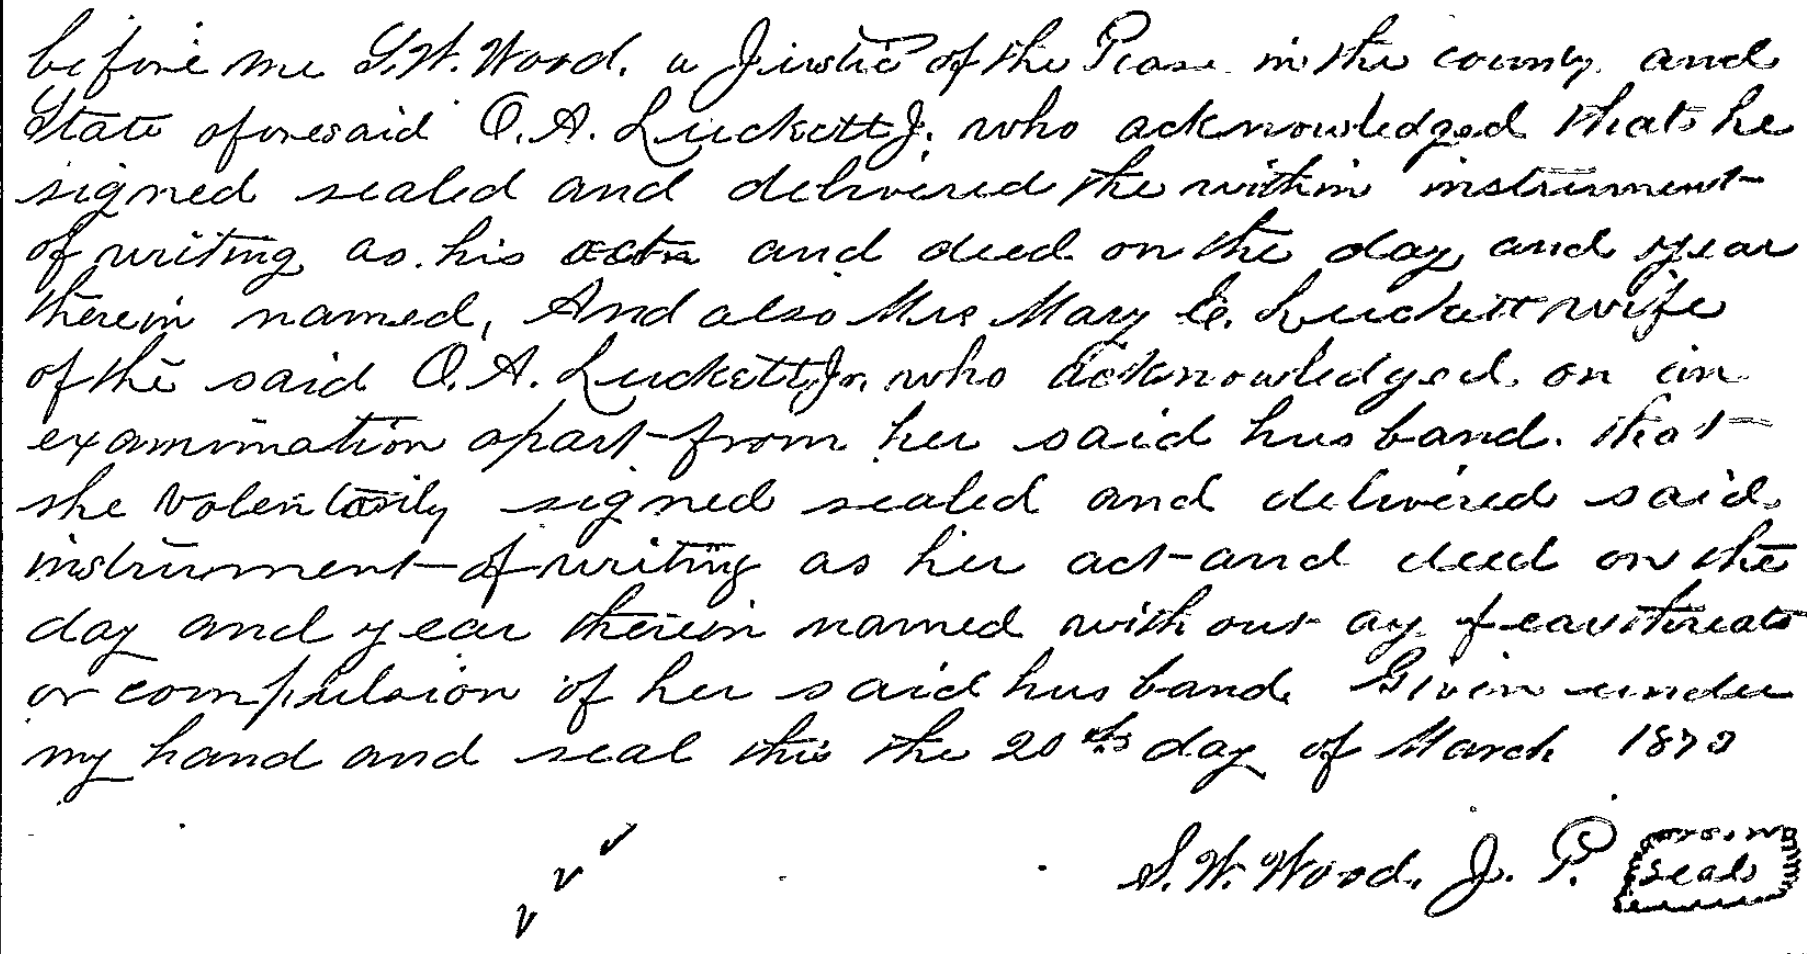 before me S.W. Wood, a Justic of the Pease in the county and
State aforesaid O. A. Luckett Jr. who acknowledged that he
signed sealed and delivered the within instrument
of writing as his act and deed on the day and year
therein named, And also Mrs Mary E. Luckett wife
of the said O. A. Luckett Jr. who acknowledged on an
examination apart from her said husband. that
she volentarily signed sealed and delivered said
instrument of writing as her act and deed on the
day and year therein named without ay fear threats
or compulsion of her said husband. Given under
my hand and seal this the 20th day of March
S. W. Wood, J. P. seal